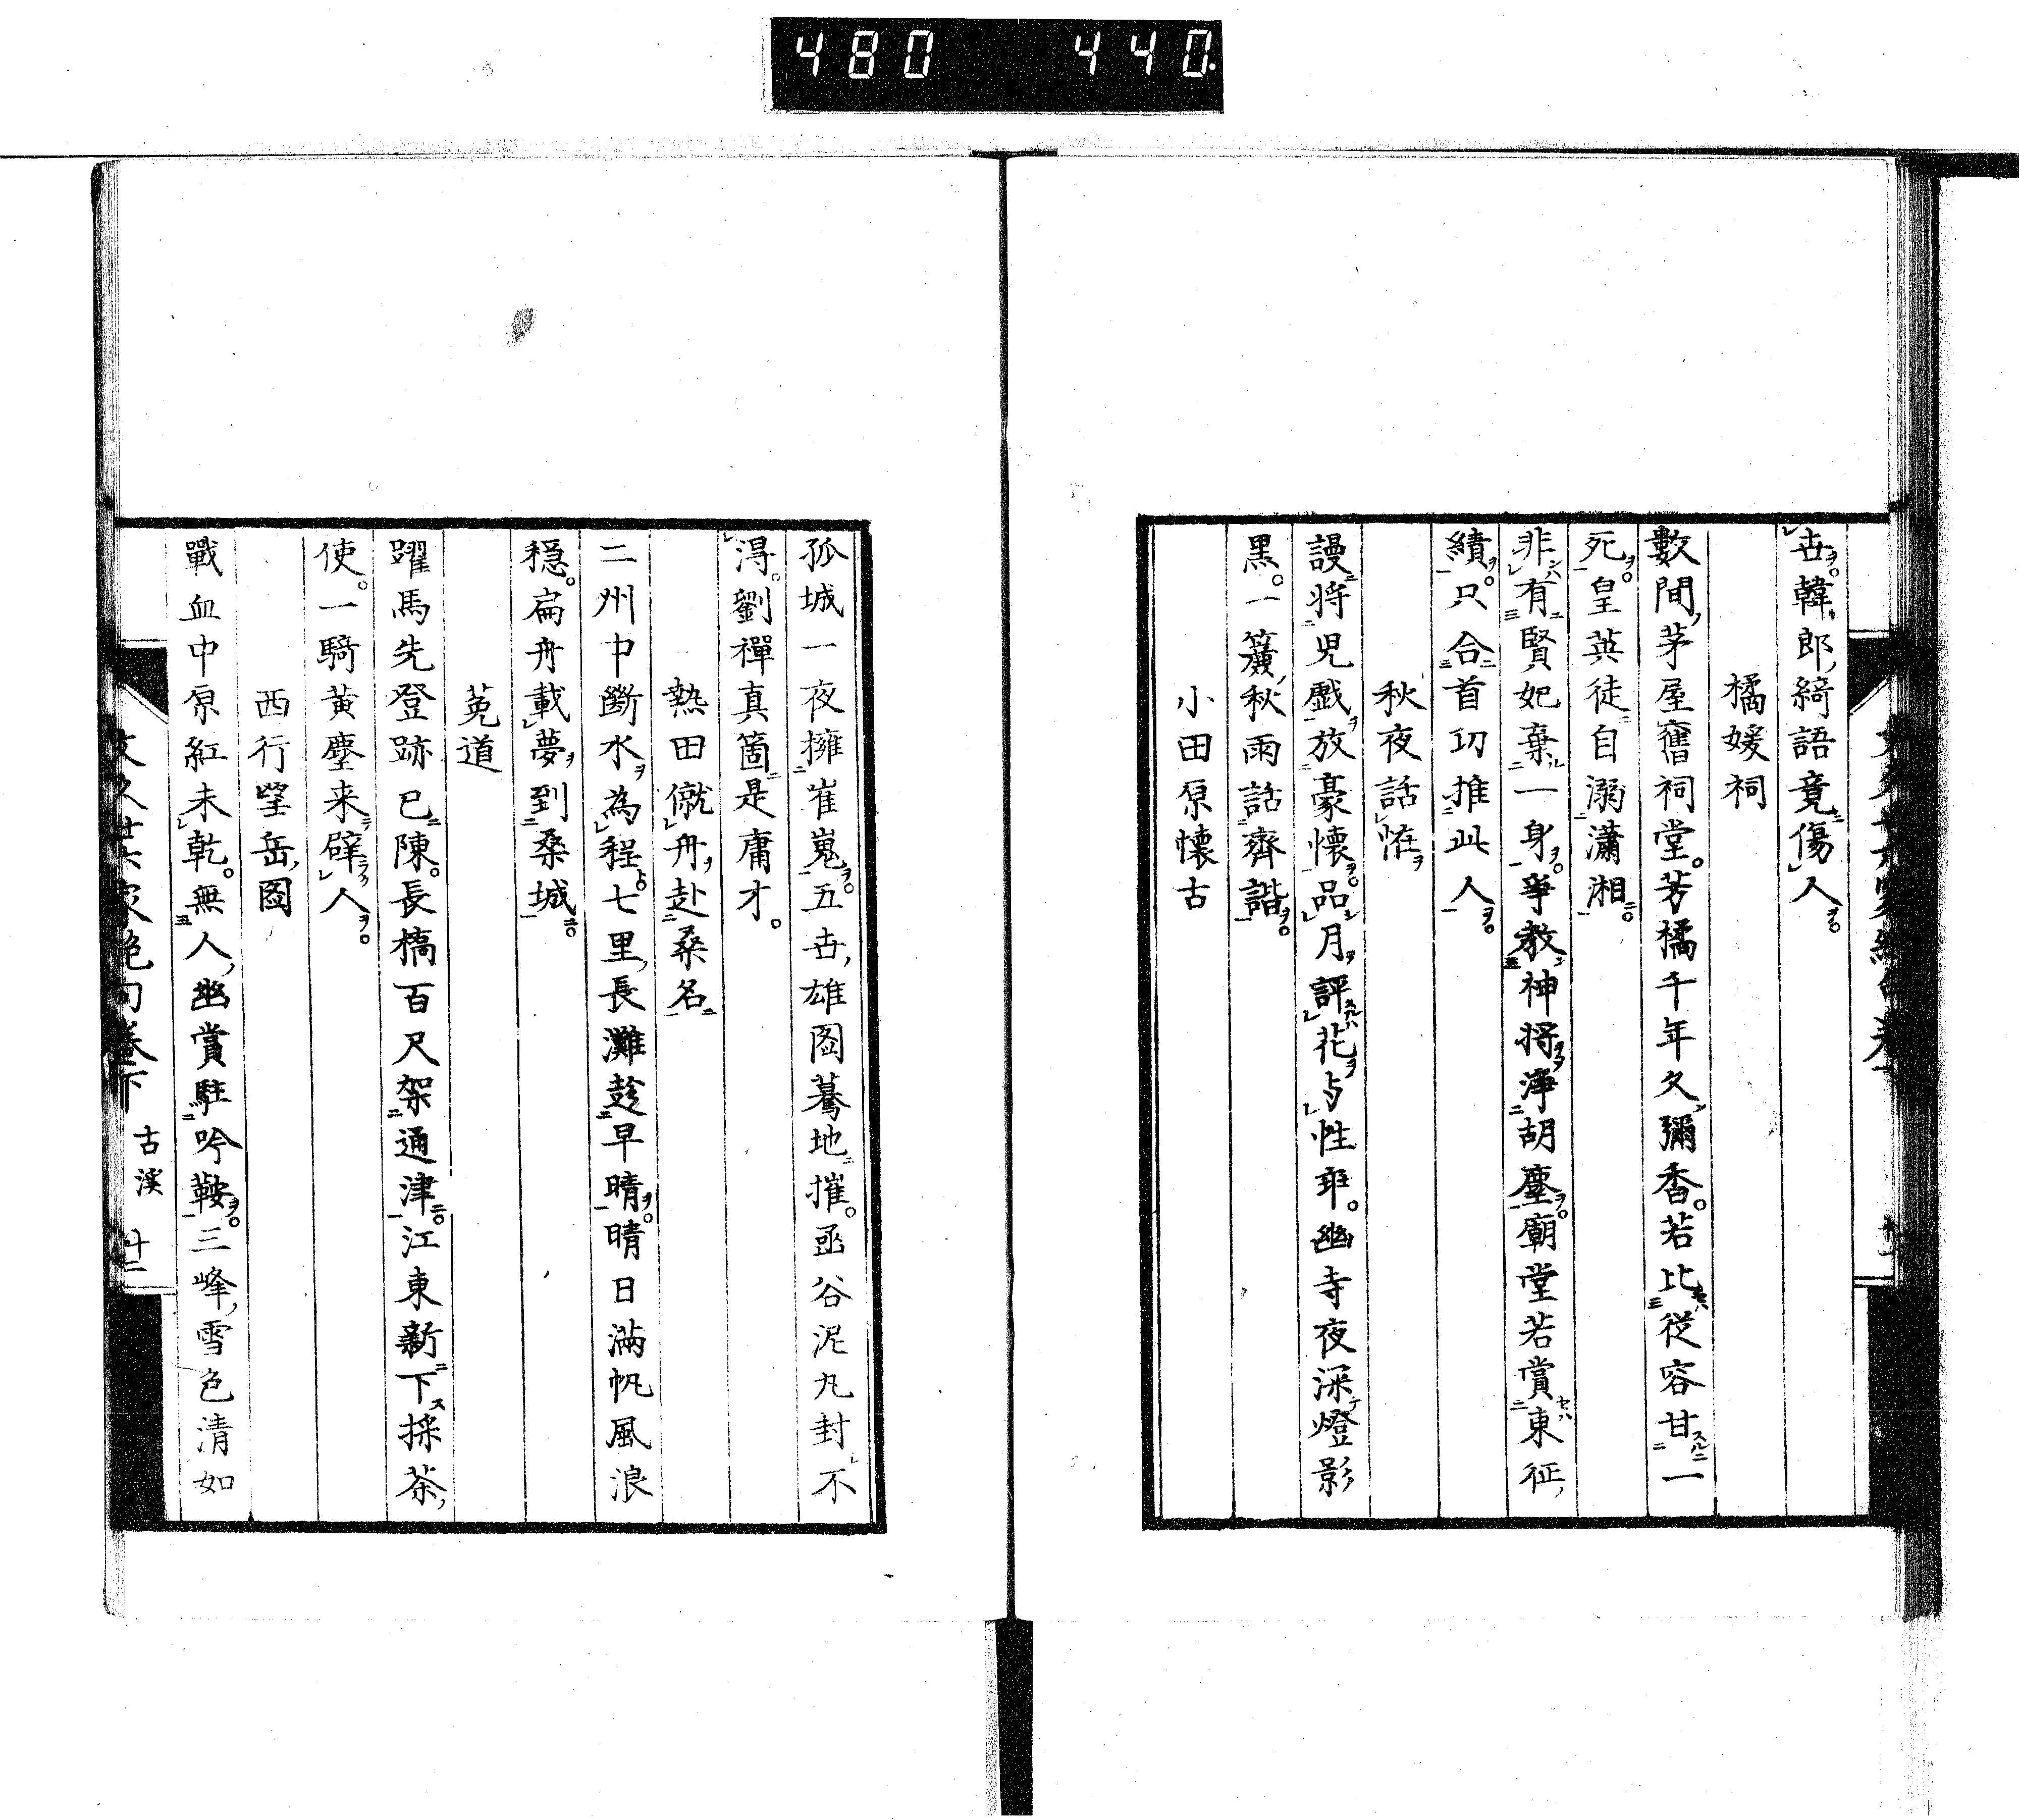 480 440.
世韓郎綺語竟傷人
橘媛祠
數間茅屋舊祠堂芳橘千年久彌香若比從容甘一
死皇英徒自溺瀟湘
非有賢妃棄一身爭教神將淨胡塵廟堂若賞東征
績只合首功推此人
秋夜話恠
謾將児戲放豪懷品月評花与性乖幽寺夜深燈影
黒一簾秋雨話齊諧
小田原懷古
孤城一夜擁崔嵬五世雄圖驀地摧函谷泥丸封不
得劉禪真箇是庸才
熱田僦舟赴桑名
二州中斷水為程七里長灘趁早晴晴日滿帆風浪
穏扁舟載夢到桑城
莵道
躍馬先登跡已陳長橋百尺架通津江東新下採茶
使一騎黃塵来辟人
西行望岳圖
戰血中原紅未乾無人幽賞駐吟鞍三峰雪色清如
文久廿六家絶句卷下 古溪 廿二